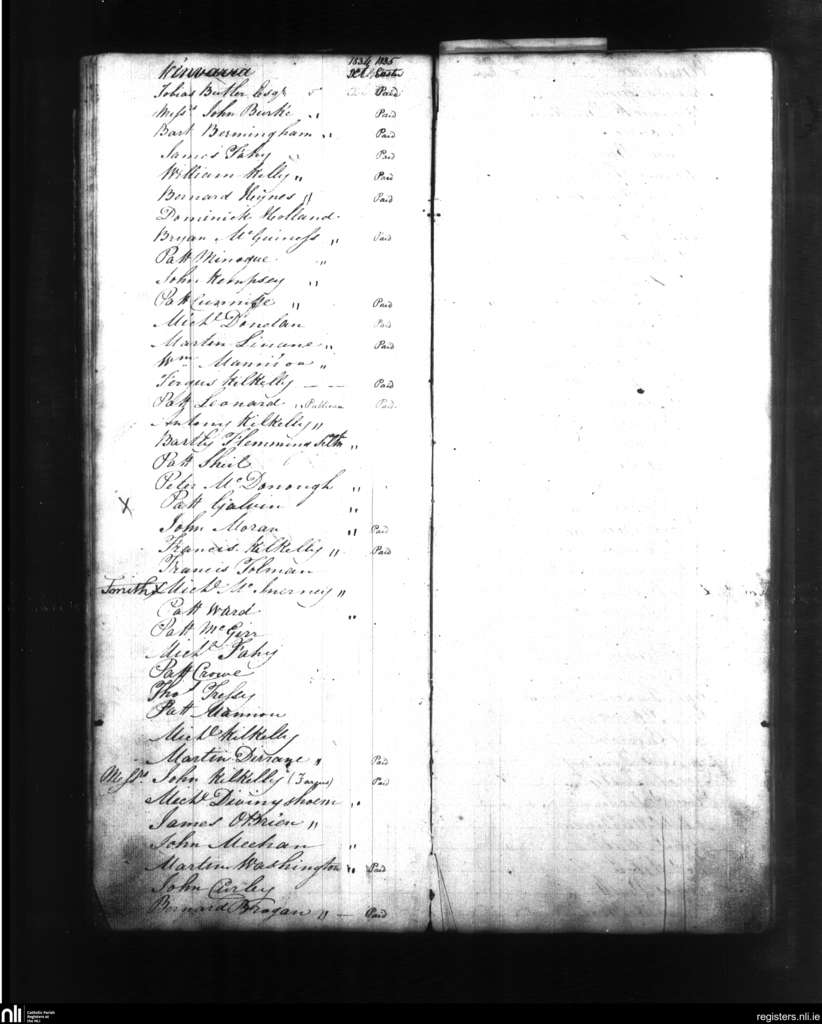 Kinvarra 1834 1835
Xt. Easter
Tobias Butler Esqr Paid
Messrs John Burke " Paid
Bart Bermingham " Paid
James Fahy " Paid
William Kelly " Paid
Bernard Hynes " Paid
Dominick Holland
Bryan McGuiness " Paid
Patt Minogue "
John Kempsey "
Patt Cunniffe " Paid
Michl Donolan Paid
Martin Linane " Paid
Wm Mannion "
Fergus Kilkelly — — Paid
Patt Leonard " Paid
Antony Kilkelly "
Bartly Flemming "
Patt Sheil
Peter McDonough "
X Patt Galvin "
John Moran " Paid
Francis Kilkelly " Paid
Francis Tolman
Smith X Michl McInerney "
Patt Ward "
Patt McGirr
Michl Fahy
Patt Crowe
Thos Tressy
Patt Mannion
Michl Kilkelly
Martin Dirrane " Paid
Messrs John Kilkelly (Fargus) Paid
Michl Diviny shoem "
James OBrien "
John Meehan "
Martin Washington " Paid
John Curley
Bernard Brogan " — Paid
nli Catholic Parish Registers at the NLI
registers.nli.ie